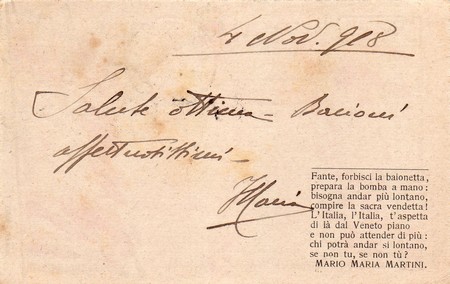 4 Nov. 918
Salute ottima - Bacioni
affettuosissimi -
Fante, forbisci la baionetta,
prepara la bomba a mano:
bisogna andar più lontano,
compire la sacra vendetta!
L'Italia, l'Italia, t'aspetta
di là dal Veneto piano
e non può attender di più:
chi potrà andar sì lontano,
se non tu, se non tù?
MARIO MARIA MARTINI.